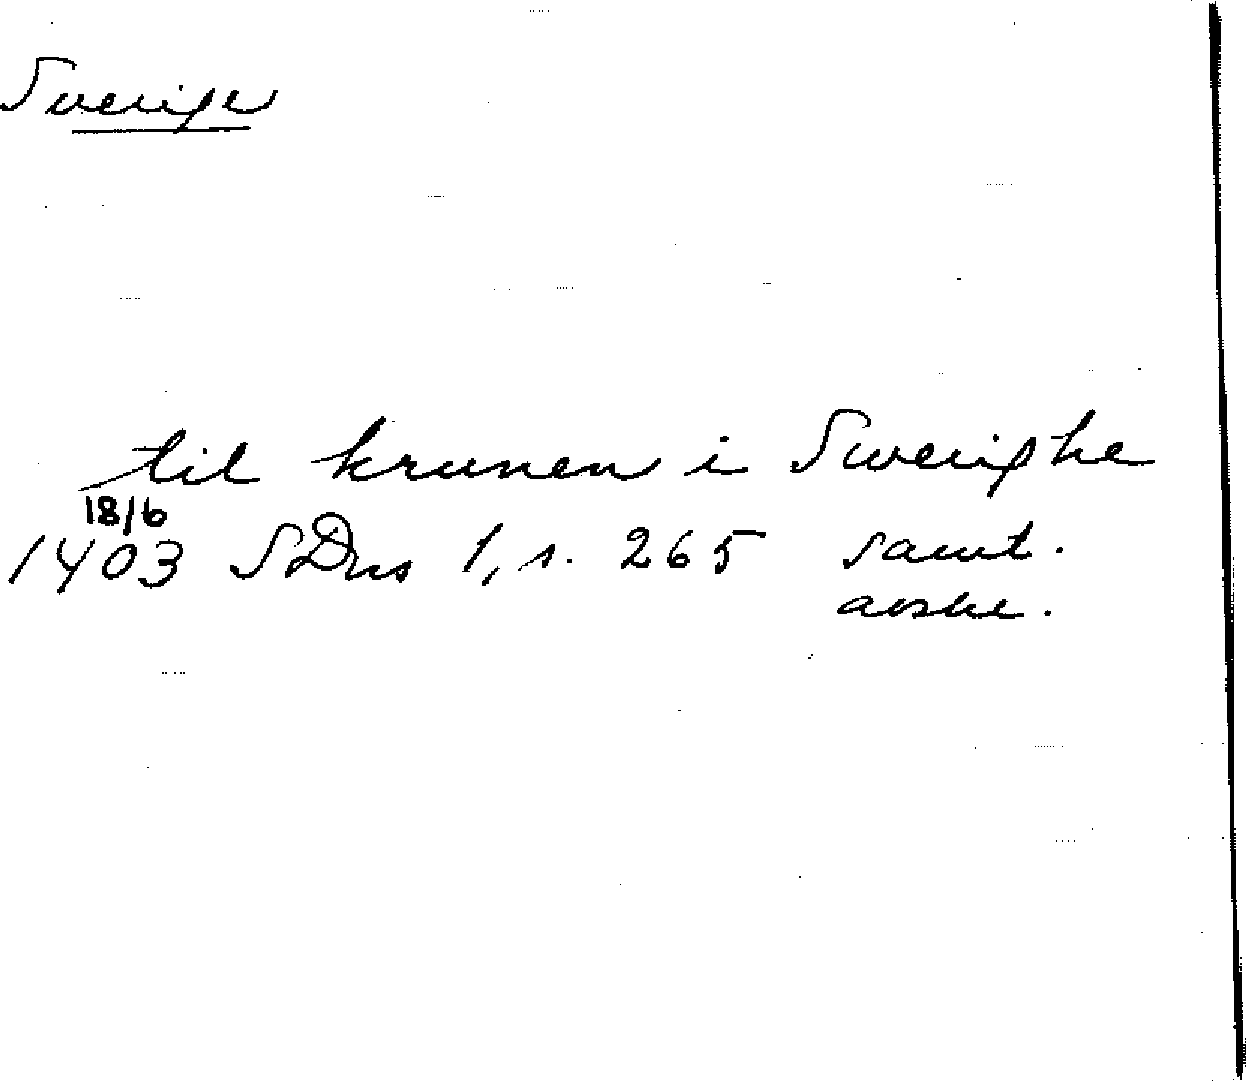 Sverige
til krunen i Swerighe
18/6
1403 SDns 1, s. 265 samt.
avskr.